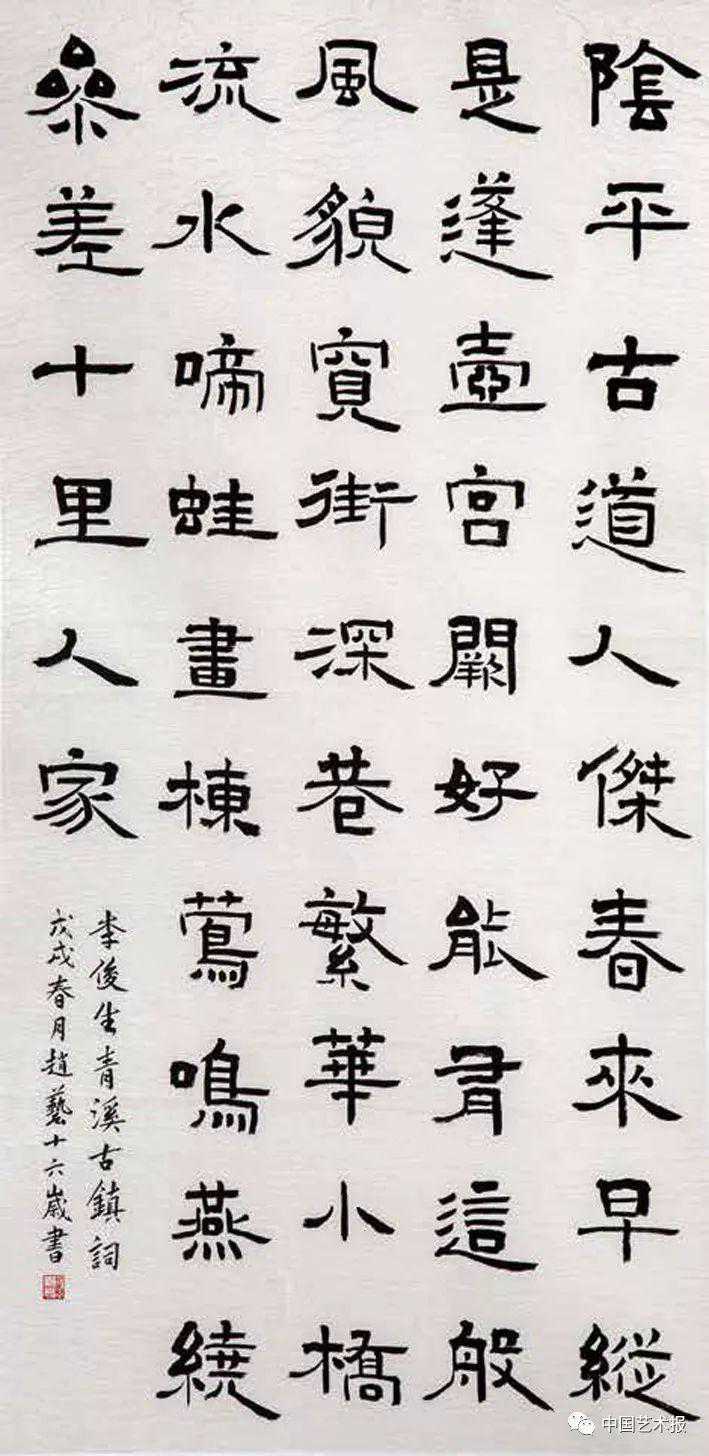 陰平古道人傑春來早縱
是蓬壺宮闕好能有這般
風貌寬街深巷繁華小橋
流水啼蛙畫棟鶯鳴燕繞
參差十里人家
李俊生青溪古鎮詞
戊戌春月趙藝十六歲書
中国艺术报